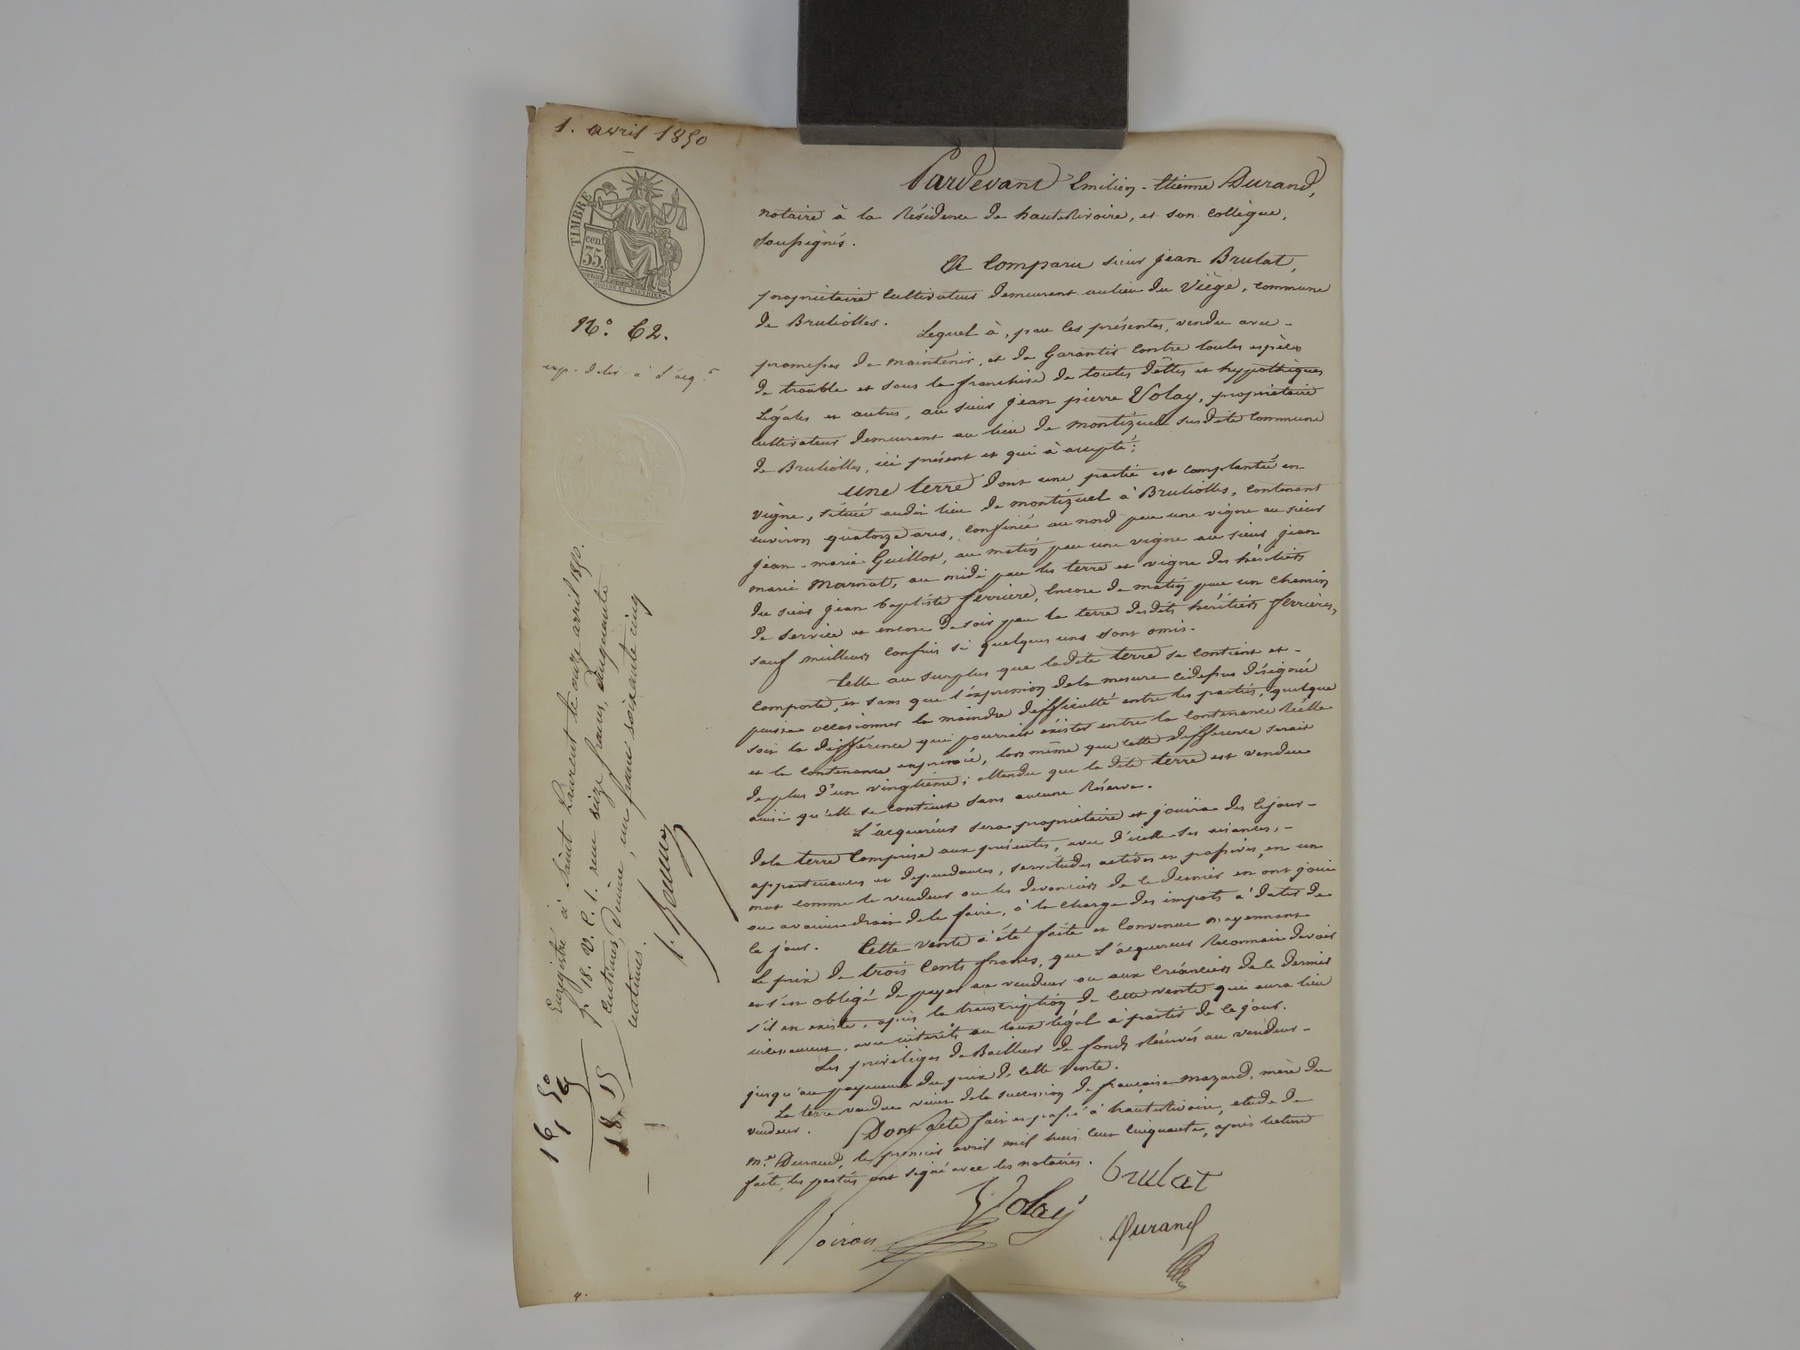 1. avril 1850
TIMBRE
35 cen
N.° 62.
exp. deliv. à l'acq.r
Pardevant Emilien-Etienne Durand,
notaire à la Résidence de hauterivoire, et son collègue,
soussignés.
A Comparu sieur jean Brulat,
propriétaire Cultivateur demeurant au lieu du Viège, commune
de Brullioles.
Lequel à, par les présentes, vendu avec
promesses de maintenir, et de Garantir contre toutes espèces
de trouble et sous la franchise de toutes dêttes et hypothèques
légales et autres, au sieur jean pierre Volay, propriétaire
cultivateur demeurant au lieu de montizuel susdite commune
de Brullioles, ici présent et qui à accepté;
une terre dont une partie est complantée en
vigne, située audit lieu de montizuel à Brullioles, contenant
environ quatorze ares, confinée au nord par une vigne au sieur
jean-marie Guillot, au matin par une vigne au sieur jean
marie Marnat, au midi par les terre et vigne des héritiers
du sieur jean baptiste ferriere, Encore de matin par un chemin
de service et encore de soir par la terre desdits héritiers ferrières,
sauf meilleurs confins si quelques uns sont omis.
telle au surplus que ladite terre se contient et
comporte, et sans que l'expression de la mesure cidessus désignée
puisse occasionner la moindre difficulté entre les parties, quelque
soit la différence qui pourrait éxister entre la contenance Réelle
et la contenance exprimée, lors même que cette différence serait
de plus d'un vingtième; attendu que la dite terre est vendue
ainsi qu'elle se contient sans aucune Réserve.
L'acquéreur sera propriétaire et jouira dès ce jour
de la terre Comprise aux présentes, avec d'icelle ses aisances,
appartenances et dépendances, servitudes actives et passives, en un
mot comme le vendeur ou les devanciers de ce dernier en ont joui
ou avaient droit de le faire, à la charge des impots à dater de
ce jour. Cette vente à été faite et Convenue moyennant
le prix de trois Cents francs, que l'acquereur Reconnait devoir
et s'est obligé de payer au vendeur ou aux Créanciers de ce dernier
s'il en existe, après la transcription de cette vente qui aura lieu
incessamment, avec intérêts au taux légal à partir de ce jour.
Les privilèges de Bailleur de fonds Réservés au vendeur
jusqu'au payement du prix de cette vente.
La terre vendue vient de la succession de françoise Mazard, mère du
vendeur. Dont acte fait et passé à hauterivoire, etude de
m.e Durand, le premier avril mil huit cent Cinquante, après lecture
faite, les parties ont signé avec les notaires.
brulat
Volay
Noiron
Durand
Enregistré à Saint Laurent le onze avril 1850.
f. 18. V. C. 1. reçu seize francs, cinquante
centimes, dixième, un franc soixante cinq
centimes.
16, 50
1, 65
18, 15